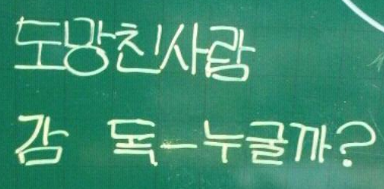 도망친사람
감 독-누굴까?